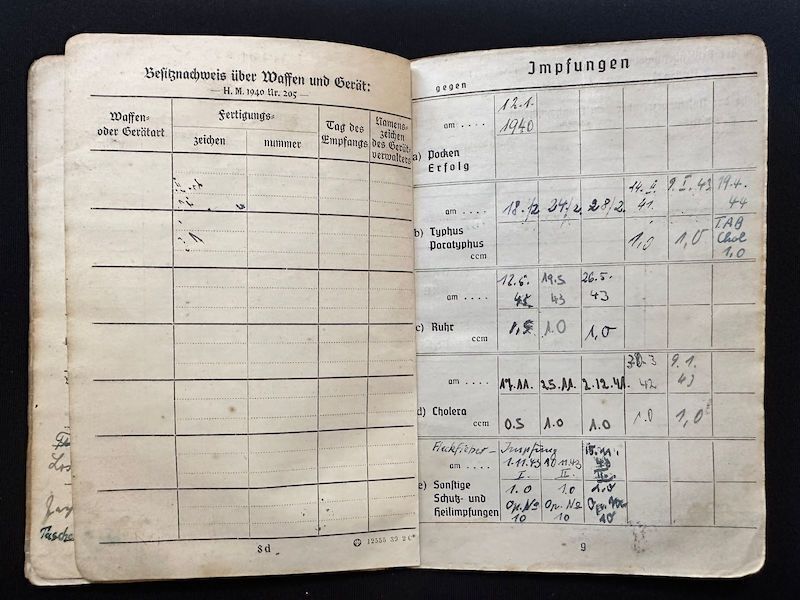 Besitznachweis über Waffen und Gerät:
— H. M. 1940 Nr. 205 —
Waffen-
oder Gerätart
Fertigungs-
zeichen
nummer
Tag des
Empfangs
Namens-
zeichen
des Gerät-
verwalters
8d
12555 39 2 C
Impfungen
gegen
12.1.
am .... 1940
a) Pocken
Erfolg
14. 9. I. 43 19.4.
am .... 18./2. 24/2. 28/2. 41. 44
b) Typhus TAB
Paratyphus 1,0 1,0 Chol
ccm 1,0
12.5. 19.5 26.5.
am .... 43 43
c) Ruhr 1.0 1,0
ccm
9.1.
am .... 17.11. 25.11. 2.12.41. 42 43
d) Cholera 0.5 1.0 1.0 1.0 1,0
ccm
Fleckfieber- Impfung
am .... 1.11.43 10 11.43
I. II.
e) Sonstige 1.0 1.0 1.0
Schutz- und Op. No Op. No Op. No
Heilimpfungen 10 10 10
9